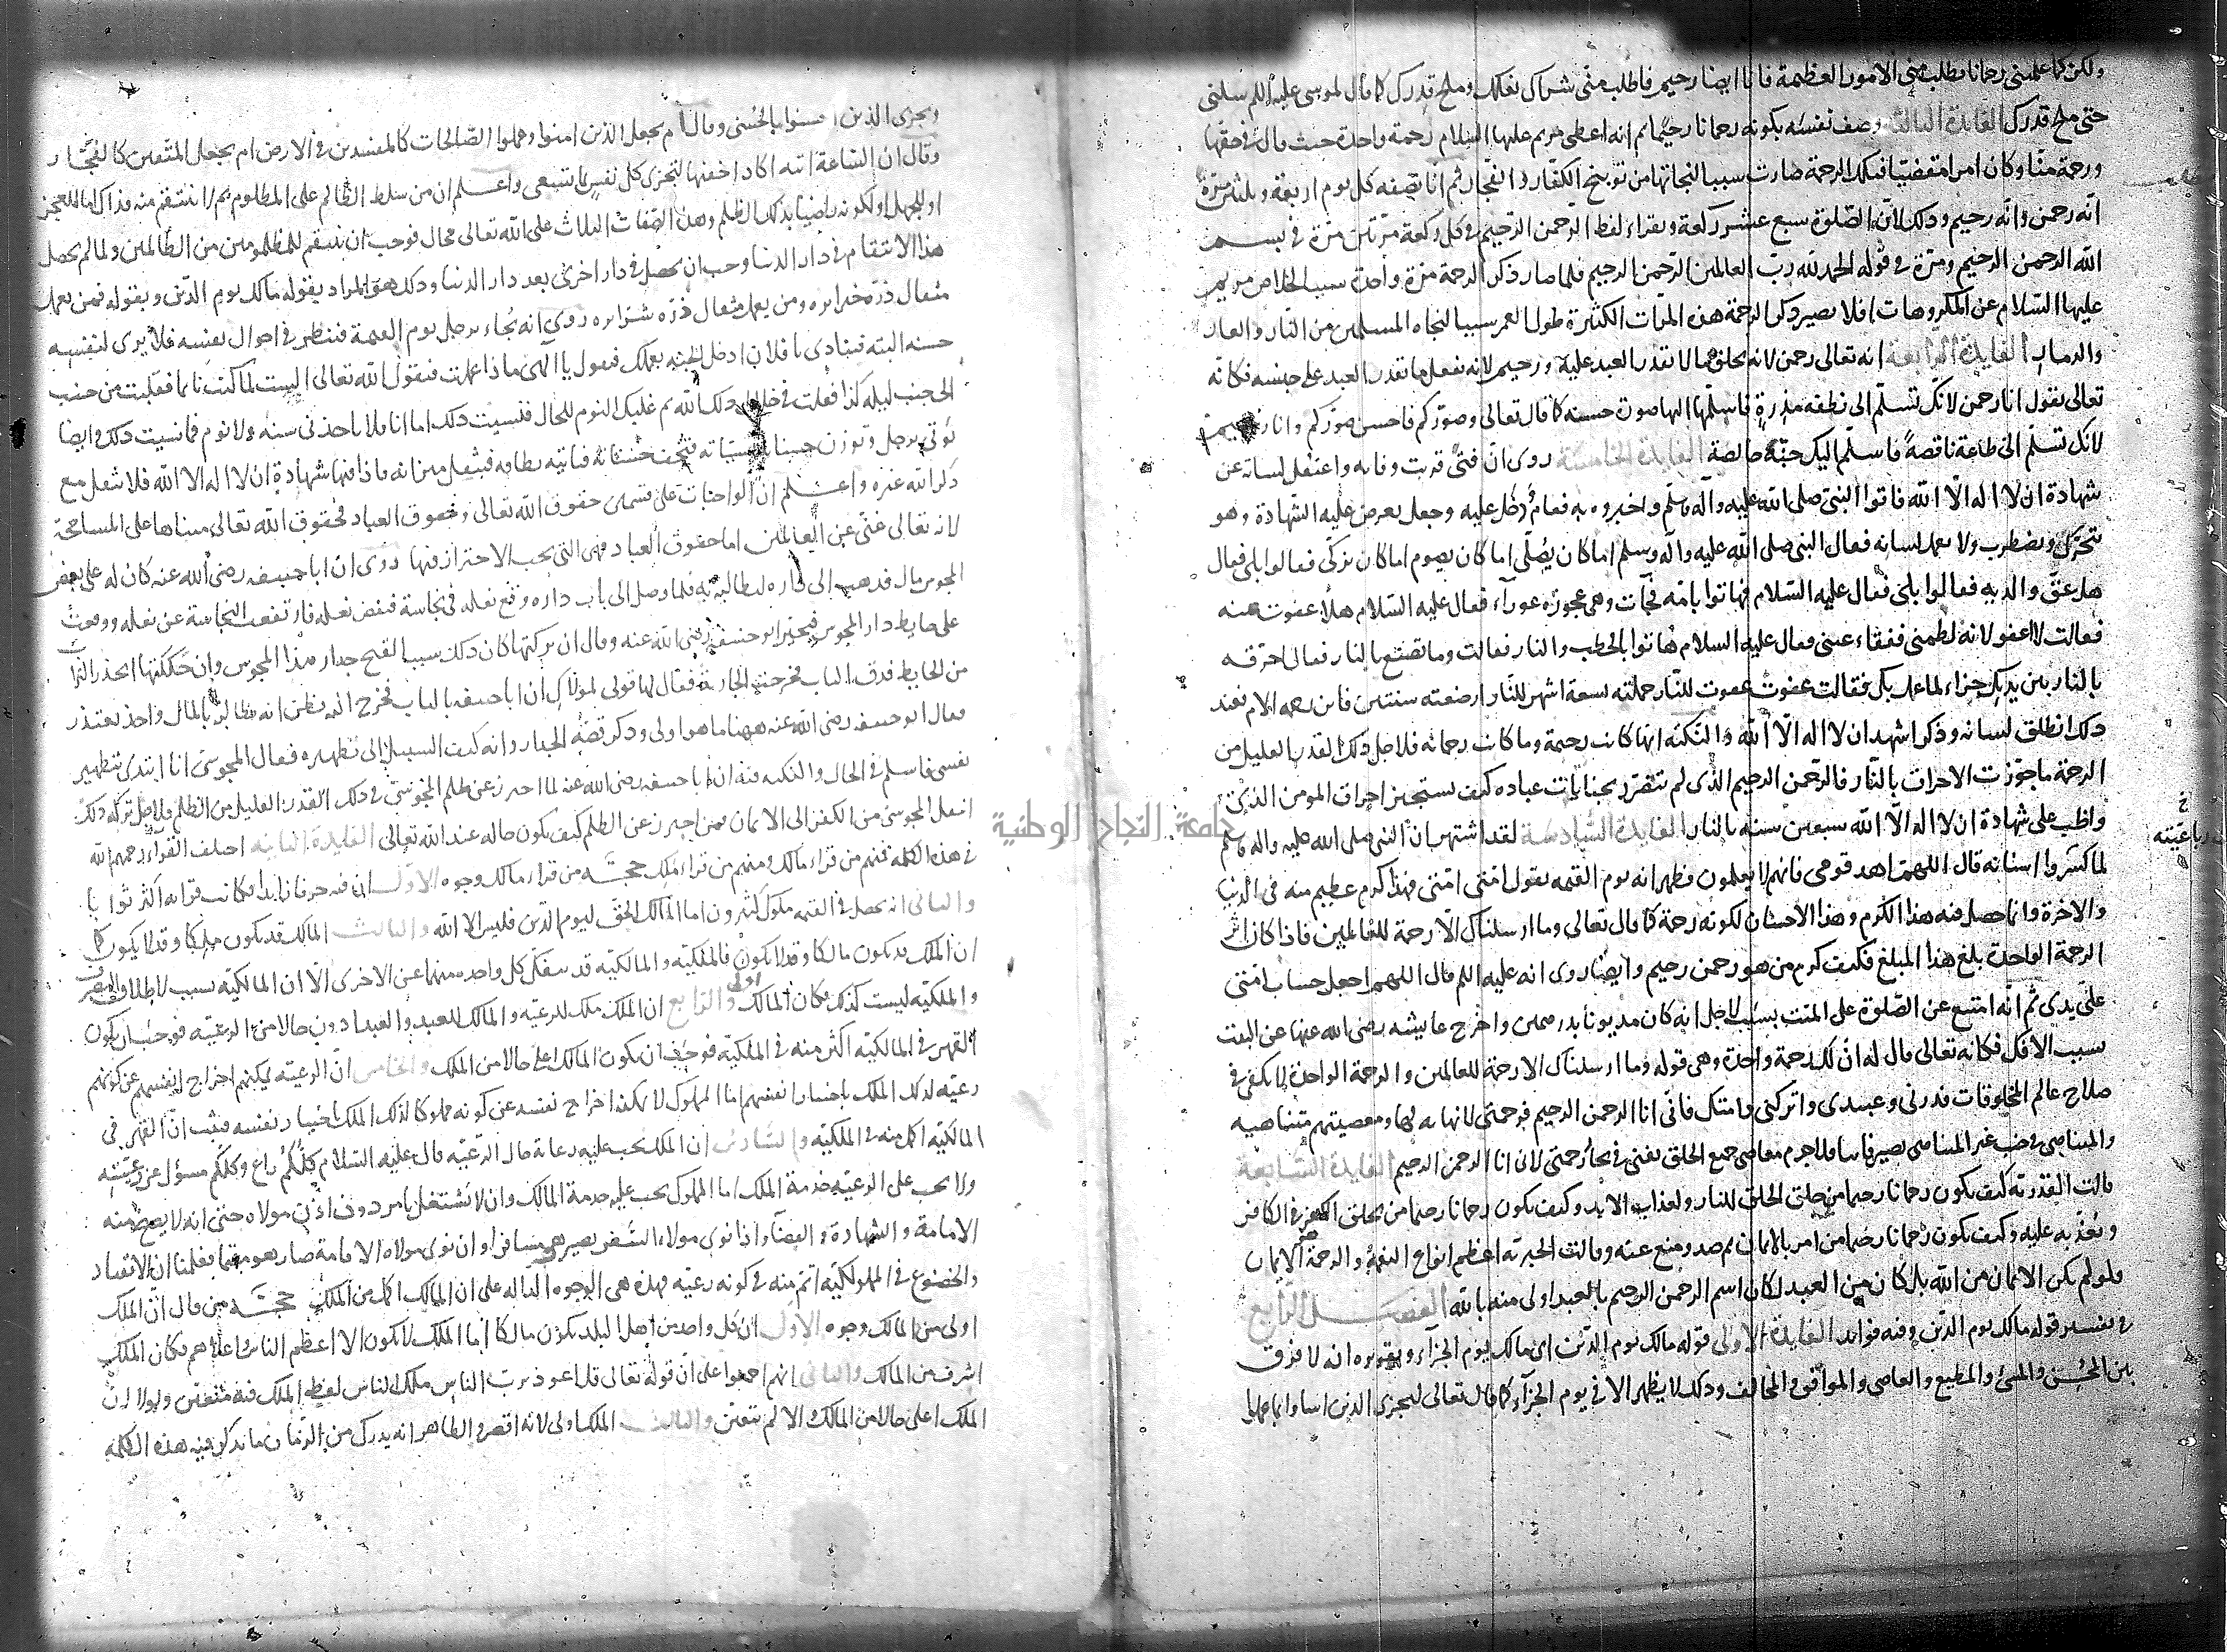 ولكن كما علمتني رحمانا تطلب مني الامور العظيمة فانا ايضا رحيم فاطلب مني شراك نعلك وملح قدرك كما قال لموسى عليه السلم سلني
حتى ملح قدرك الفايدة الثالثة وصف نفسه بكونه رحمانا رحيما ثم انه اعطى مريم عليها السلام رحمة واحدة حيث قال في حقها
ورحمة منا وكان امرا مقضيا فتلك الرحمة صارت سببا لنجاتها من توبيخ الكفار والفجار ثم انا نصفه كل يوم اربعة وثلثين مرة
انه رحمن وانه رحيم وذلك لان الصلوة سبع عشر ركعة ويقراء لفظ الرحمن الرحيم في كل ركعة مرتين مرة في بسم
الله الرحمن الرحيم ومرة في قوله الحمد لله رب العالمين الرحمن الرحيم فلما صار ذكر الرحمة مرة واحدة سببا لخلاص مريم
عليها السلام عن المكروهات افلا يصير ذكر الرحمة هذه المرات الكثيرة طول العمر سببا لنجاة المسلمين من النار والعار
والدمار الفايدة الرابعة انه تعالى رحمن لانه يخلق ما لا يقدر العبد عليه ورحيم لانه يفعل ما يقدر العبد على جنسه فكانه
تعالى يقول انا رحمن لانك تسلم الى نطفة مذرة فاسلمها اليها صورة حسنة كما قال تعالى وصوركم فاحسن صوركم وانا رحيم
لانك تسلم الى طاعة ناقصة فاسلم اليك جنة خالصة الفايدة الخامسة روى ان فتى قربت وفاته واعتقل لسانه عن
شهادة ان لا اله الا الله فاتوا النبي صلى الله عليه وآله وسلم واخبروه به فقام ودخل عليه وجعل يعرض عليه الشهادة وهو
يتحرك ويضطرب ولا يعمل لسانه فقال النبي صلى الله عليه وآله وسلم اما كان يصلي اما كان يصوم اما كان يزكي فقالوا بلى فقال
هل عق والديه فقالوا بلى فقال عليه السلام فهاتوا بامه فجآت وهي عجوزه عورآء فقال عليه السلام هلا عفوت عنه
فقالت لا اعفو لانه لطمني ففقاء عيني فقال عليه السلام هاتوا بالحطب والنار فقالت وما تصنع بالنار فقال احرقه
بالنار بين يديك جزاء لما عمل بك فقالت عفوت عفوت للنار حملته تسعة اشهر للنار ارضعته سنتين فاين رحمة الام فعند
ذلك انطلق لسانه وذكر اشهد ان لا اله الا الله والنكتة انها كانت رحيمة وما كانت رحمانة فلاجل ذلك القدر القليل من
الرحمة ما جوزت الاحراق بالنار فالرحمن الرحيم الذي لم يتضرر بجنايات عباده كيف يستجيز احراق المومن الذي
واظب على شهادة ان لا اله الا الله سبعين سنة بالنار الفايدة السادسة لقد اشتهر ان النبي صلى الله عليه واله وسلم
رباعيته
لما كسروا اسنانه قال اللهم اهد قومي فانهم لا يعلمون فظهر انه يوم القيمة يقول امتي امتي فهذا كرم عظيم منه في الدنيا
والاخرة وانما حصل فيه هذا الكرم وهذا الاحسان لكونه رحمة كما قال تعالى وما ارسلناك الا رحمة للعالمين فاذا كان اثر
الرحمة الواحدة بلغ هذا المبلغ فكيف كرم من هو رحمن رحيم وايضا روى انه عليه السلم قال اللهم اجعل حساب امتي
على يدي ثم انه امتنع عن الصلوة على الميت بسبب لاجل انه كان مديونا بدرهمين واخرج عايشه رضي الله عنها عن البيت
بسبب الافك فكانه تعالى قال له ان لك رحمة واحدة وهي قوله وما ارسلناك الا رحمة للعالمين والرحمة الواحدة لا تكفي في
صلاح عالم المخلوقات فذرني وعبيدي واتركني وامتك فاني انا الرحمن الرحيم فرحمتي لا نهاية لها ومعصيتهم متناهية
والمتناهي في جنب غير المتناهي يصير فانيا فلا جرم معاصي جميع الخلق تفنى في بحار رحمتي لاني انا الرحمن الرحيم الفايدة السابعة
قالت القدرية كيف يكون رحمانا رحيما من خلق الخلق للنار ولعذاب الابد وكيف يكون رحمانا رحيما من يخلق الكفر في الكافر
ويعذبه عليه وكيف يكون رحمانا رحيما من امر بالايمان ثم صد ومنع عنه وقالت الجبرية اعظم انواع النعمة والرحمة هو الايمان
فلو لم يكن الايمان من الله بل كان من العبد لكان اسم الرحمن الرحيم بالعبد اولى منه بالله الفصل الرابع
في تفسير قوله مالك يوم الدين وفيه فوايد الفايدة الاولى قوله مالك يوم الدين اي مالك يوم الجزآء وتقريره انه لا فرق
بين المحسن والمسئ والمطيع والعاصي والموافق والمخالف وذلك لا يظهر الا في يوم الجزآء كما قال تعالى ليجزي الذين اساوا بما عملوا
ويجزى الذين احسنوا بالحسنى وقال ام نجعل الذين امنوا وعملوا الصالحات كالمفسدين في الارض ام نجعل المتقين كالفجار
وقال ان الساعة اتية اكاد اخفيها لتجزى كل نفس بما تسعى واعلم ان من سلط الظالم على المظلوم ثم لا ينتقم منه فذاك اما للعجز
او للجهل او لكونه راضيا بذلك الظلم وهذه الصفات الثلاث على الله تعالى محال فوجب ان ينتقم للمظلومين من الظالمين ولما لم يحصل
هذا الانتقام في دار الدنيا وجب ان يحصل في دار اخرى بعد دار الدنيا وذلك هو المراد بقوله مالك يوم الدين وبقوله فمن يعمل
مثقال ذرة خيرا يره ومن يعمل مثقال ذرة شرا يره روي انه يجاء برجل يوم القيمة فينظر في احوال نفسه فلا يرى لنفسه
حسنة البتة فينادى يا فلان ادخل الجنة بعملك فيقول يا الهي ماذا عملت فيقول الله تعالى الست لما كنت نائما فقلبت من جنب
الى جنب ليلة كذا فقلت في خلال ذلك الله ثم غلبك النوم للحال فنسيت ذلك اما انا فلا ياخذني سنة ولا نوم فما نسيت ذلك وايضا
يؤتى برجل وتوزن حسناته بسيآته فتخف حسناته فتاتيه بطاقة فيثقل ميزانه فاذا فيها شهادة ان لا اله الا الله فلا يثقل مع
ذكر الله غيره واعلم ان الواجبات على قسمين حقوق الله تعالى وحقوق العباد فحقوق الله تعالى مبناها على المسامحة
لانه تعالى غني عن العالمين اما حقوق العباد فهي التي يجب الاحتراز فيها روى ان ابا حنيفه رضي الله عنه كان له على بعض
المجوس مال فذهب الى داره ليطالبه به فلما وصل الى باب داره وقع نعله في نجاسة فنفض نعله فارتفعت النجاسة عن نعله ووقعت
على حايط دار المجوسي فتحير ابو حنيفة رضي الله عنه وقال ان تركتها كان ذلك سببا لقبح جدار هذا المجوسي وان حككتها انحدر التراب
من الحايط فدق الباب فخرجت الجارية فقال لها قولي لمولاك ان ابا حنيفه بالباب فخرج اليه وظن انه يطالبه بالمال واخذ يعتذر
فقال ابو حنيفه رضي الله عنه ههنا ما هو اولى وذكر قصة الجدار وانه كيف السبيل الى تطهيره فقال المجوسي انا ابتدئ بتطهير
نفسي فاسلم في الحال والنكتة فيه ان ابا حنيفه رضي الله عنه لما احترز عن ظلم المجوسي في ذلك القدر القليل من الظلم فلاجل تركه ذلك
انتقل المجوسي من الكفر الى الايمان فمن احترز عن الظلم كيف يكون حاله عند الله تعالى الفايدة الثانية اختلف القراء رحمهم الله
في هذه الكلمة فمنهم من قراء مالك ومنهم من قراء ملك حجة من قراء مالك وجوه الاول ان فيه حرفا زايدا فكانت قراءته اكثر ثوابا
والثاني انه يحصل في القيمة ملوك كثيرون اما المالك الحق ليوم الدين فليس الا الله والثالث المالك قد يكون ملكا وقد لا يكون كما
ان الملك قد يكون مالكا وقد لا يكون فالملكية والمالكية قد تنفك كل واحده منهما عن الاخرى الا ان المالكية سبب لاطلاق التصرف
والملكية ليست كذلك فكان المالك اولى والرابع ان الملك ملك للرعية والمالك للعبد والعبد ادون حالا من الرعية فوجب ان يكون
القهر في المالكية اكثر منه في الملكية فوجب ان يكون المالك اعلى حالا من الملك والخامس ان الرعية يمكنهم اخراج انفسهم عن كونهم
رعية لذلك الملك باختيار انفسهم اما المملوك لا يمكنه اخراج نفسه عن كونه مملوكا لذلك المالك باختيار نفسه فثبت ان القهر في
المالكية اكمل منه في الملكية والسادس ان الملك يجب عليه رعاية حال الرعية قال عليه السلام كلكم راع وكلكم مسؤل عن رعيته
ولا يجب على الرعية خدمة الملك اما المملوك يجب عليه خدمة المالك وان لا يشتغل بامر دون اذن مولاه حتى انه لا يصح منه
الامامة والشهادة والقضآء واذا نوى مولاه السفر يصير هو مسافرا وان نوى مولاه الاقامة صار هو مقيما فعلمنا ان الانقياد
والخضوع في المملوكية اتم منه في كونه رعية فهذه هي الوجوه الدالة على ان المالك اكمل من الملك حجة من قال ان الملك
اولى من المالك وجوه الاول ان كل واحد من اهل البلد يكون مالكا اما الملك لا يكون الا اعظم الناس واعلاهم فكان الملك
اشرف من المالك والثاني انهم اجمعوا على ان قوله تعالى قل اعوذ برب الناس ملك الناس لفظ الملك فيه متعين ولولا ان
الملك اعلى حالا من المالك والا لم يتعين والثالث الملك اولى لانه اقصر والظاهر انه يدرك من الزمان ما يذكر فيه هذه الكلمة
جامعة النجاح الوطنية